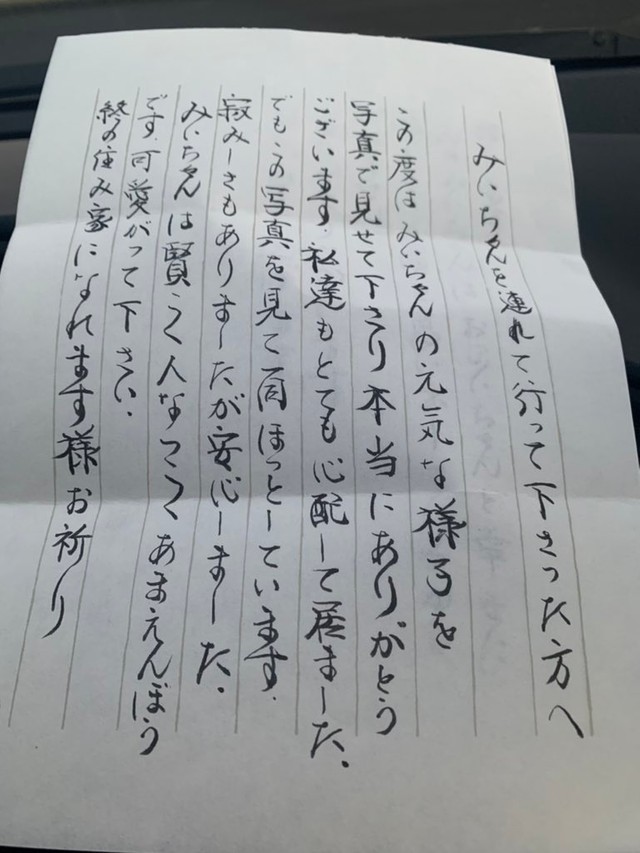 みいちゃんを連れて行って下さった方へ
この度はみいちゃんの元気な様子を
写真で見せて下さり本当にありがとう
ございます。私達もとても心配して居ました。
でもこの写真を見て一同ほっとしています。
寂しさもありましたが安心しました。
みいちゃんは賢く人なつこくあまえんぼう
です。可愛がって下さい。
終の住み家になれます様お祈り